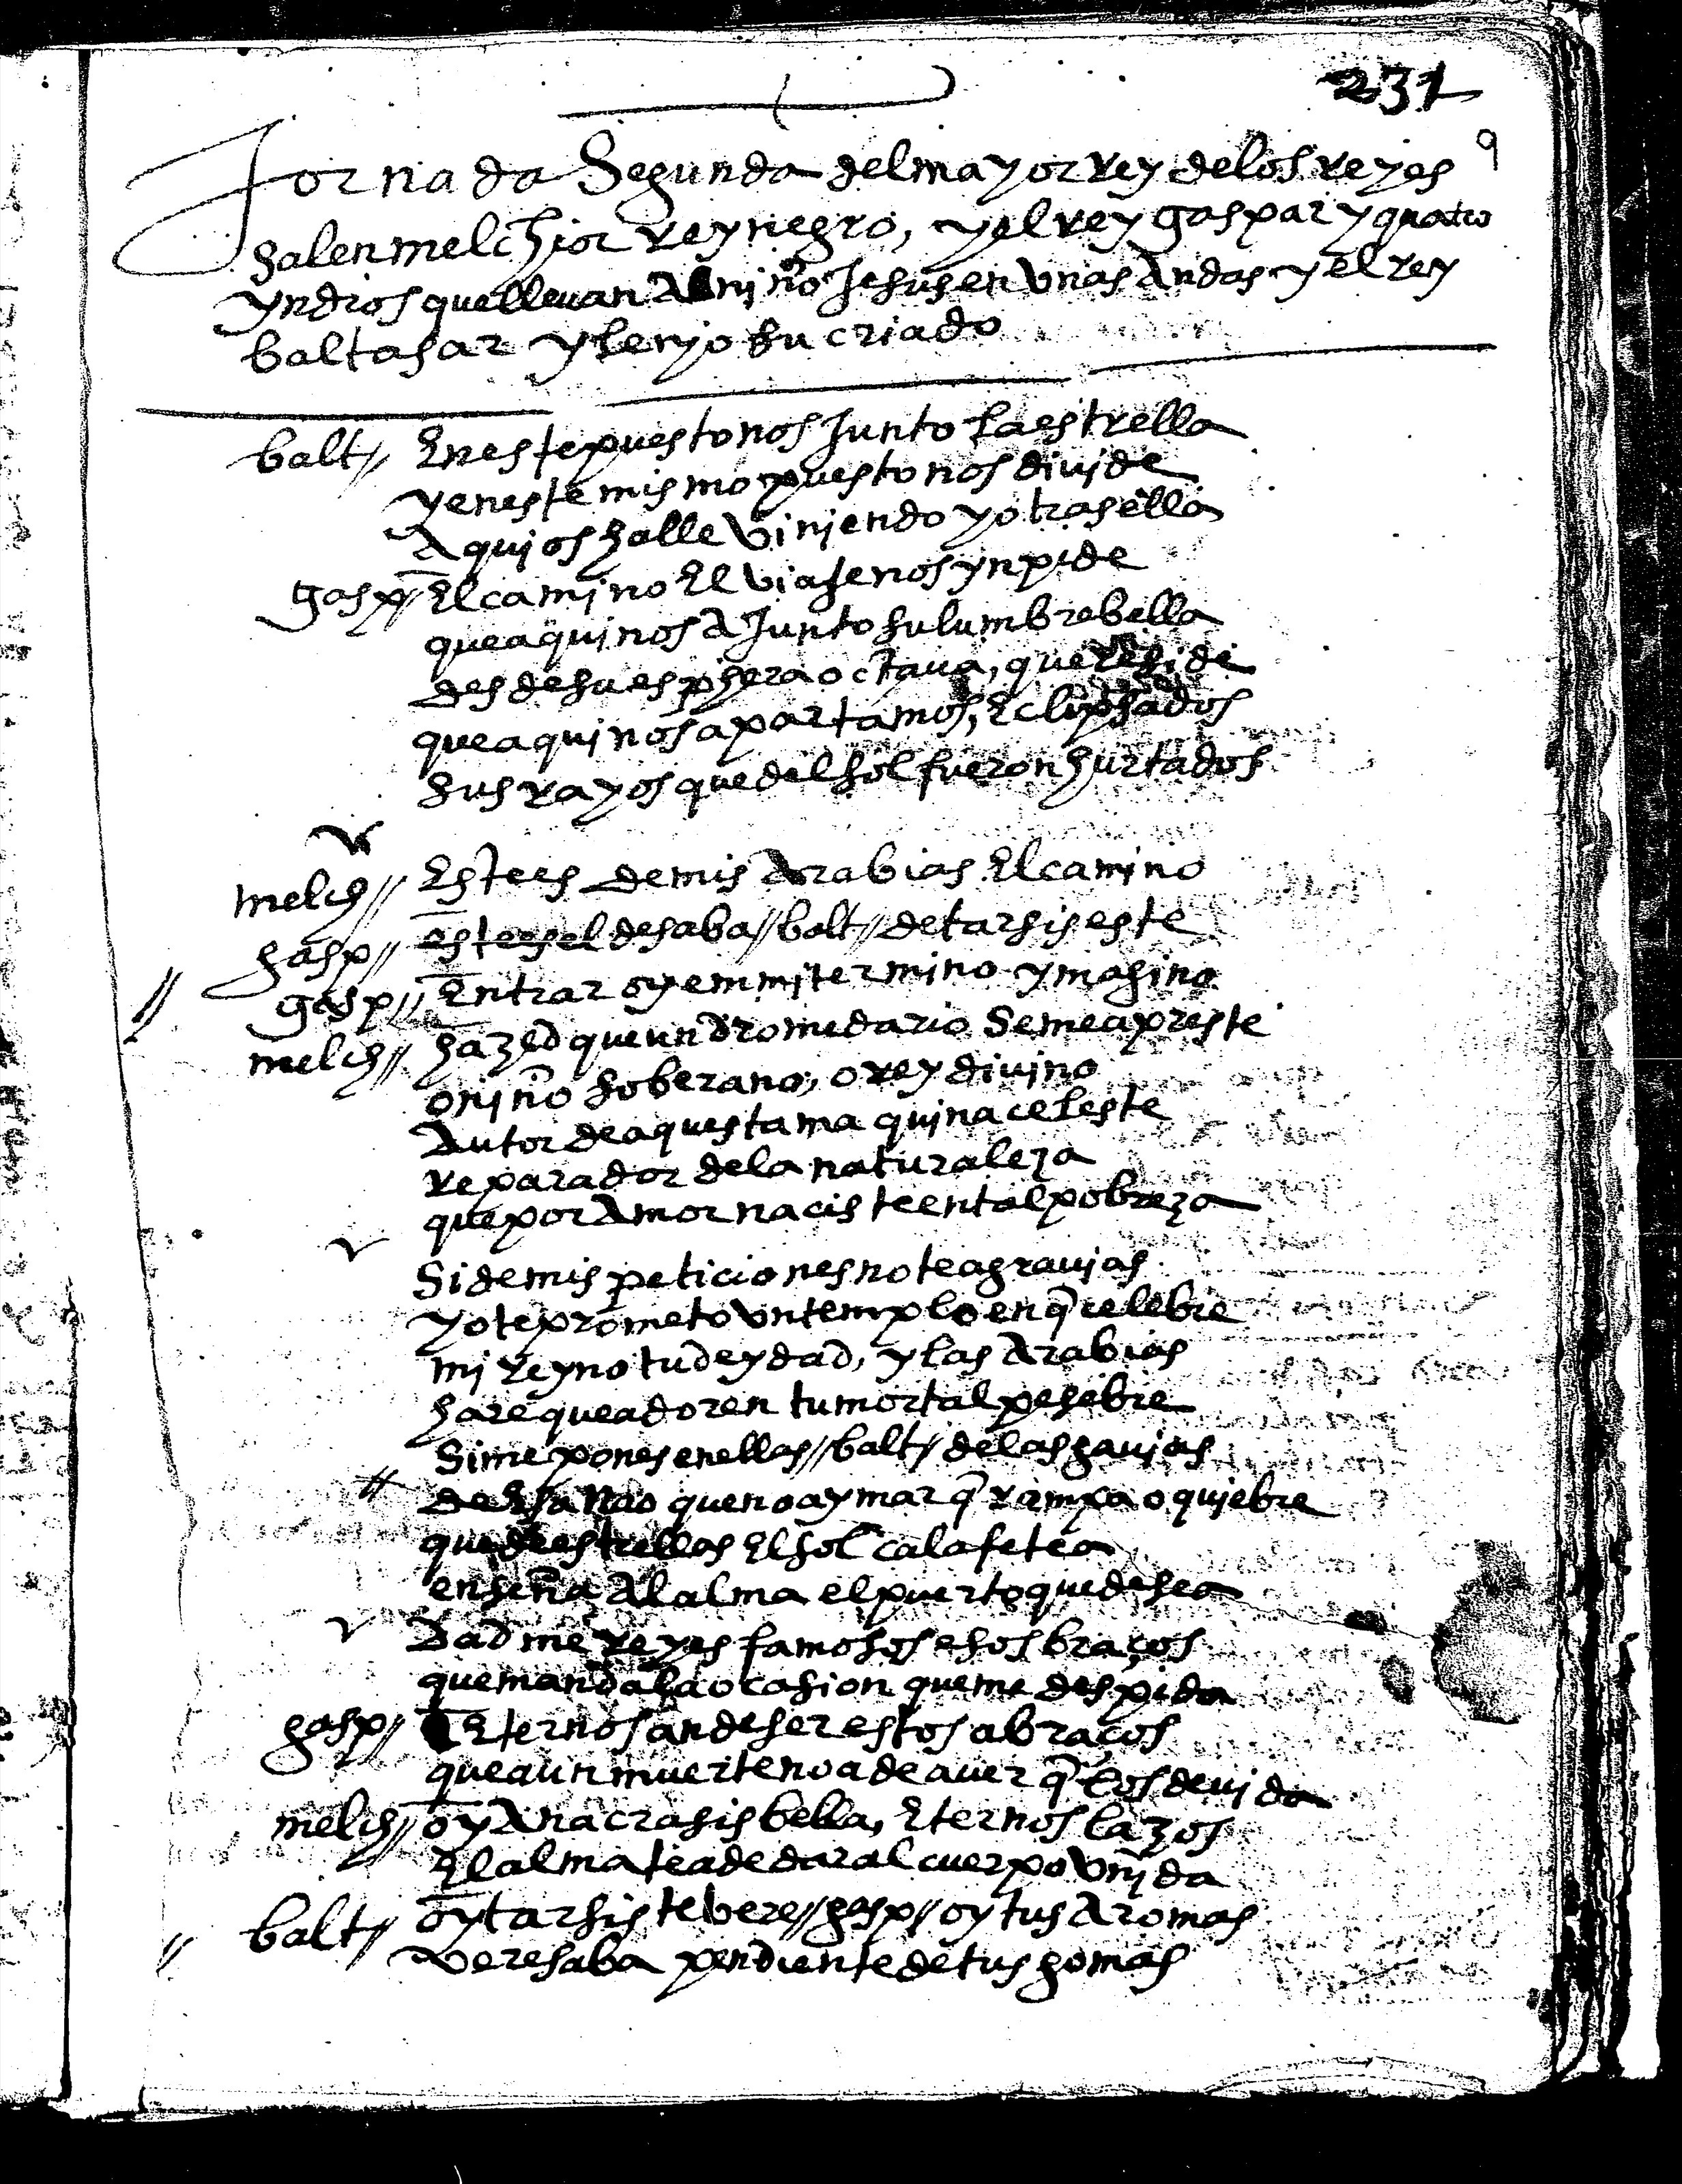 231
9
Jornada Segunda del mayor rey de los reyes
salen melchior rey negro, y el rey gaspar y quatro
yndios que lleuan Al niño Jesus en Vnas Andas y el rey
baltasar y lenjo su criado
balt// En este puesto nos Junto la estrella
y en este mismo puesto nos diujde
Aquj os halle Vinjendo yo tras ella
gasp// El camjno El Viaje nos ynpide
que aqui nos A Junto su lumbre bella
desde su esphera octaua, que reside
que aquj nos apartamos, Eclipsados
sus rayos que del sol fueron hurtados
melch// Este es de mis Arabias El camjno
gasp// este es el de saba // balt// de tarsis este
// gasp// Entrar oy em mj termino ymagino
melch// hazed que un dromedario Se me apreste
o njño soberano, o rey diujno
Autor de aquesta maquina celeste
reparador de la naturaleza
que por Amor naciste en tal pobreza
Si de mis peticiones no te agraujas
yo te prometo Vn templo en q̃ celebre
mj reyno tu deydad, y las Arabias
hare que adoren tu mortal pesebre
Si me pones en ellas // balt// de las gaujas
// de Esa Nao que no ay mar q̃ rompa o quiebre
que de estrellas El sol calafetea
enseña Al alma el puerto que desea
Dadme reyes famosos esos braços
que manda la ocasion que me despida
gasp// Eternos an de ser estos abraços
que aun muerte no a de auer q̃ los deujda
melch// oy Anacrasis bella, Eternos lazos
El alma te a de dar al cuerpo Vnjda
// balt// oy tarsis te vere // gasp// oy tus Aromas
vere saba pendiente de tus gomas